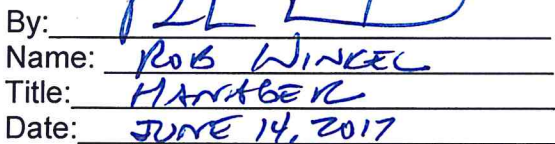 By:
Name: ROB WINKEL
Title: MANAGER
Date: JUNE 14, 2017